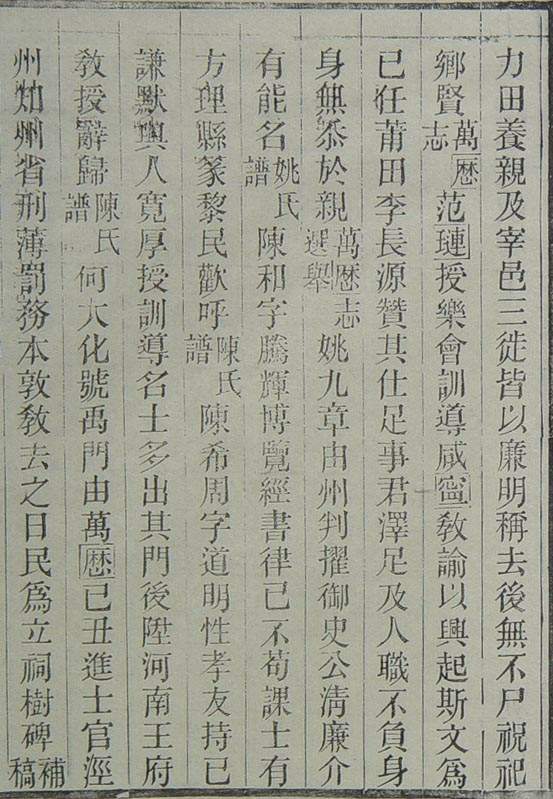 力田養親及宰邑三徙皆以廉明稱去後無不尸祝祀
鄉賢萬曆志范璉授樂會訓導咸寧敎諭以興起斯文爲
已任莆田李長源贊其仕足事君澤足及人職不負身
身無忝於親萬歴志選舉姚九章由州判擢御史公淸廉介
有能名姚氏譜陳和字騰輝博覽經書律已不苟課士有
方理縣篆黎民歡呼陳氏譜陳希周字道明性孝友持已
謙默與人寬厚授訓導名士多出其門後陞河南王府
敎授辭歸陳氏譜何大化號禹門由萬歴己丑進士官涇
州知州省刑薄罰務本敦敎去之日民爲立祠樹碑補稿